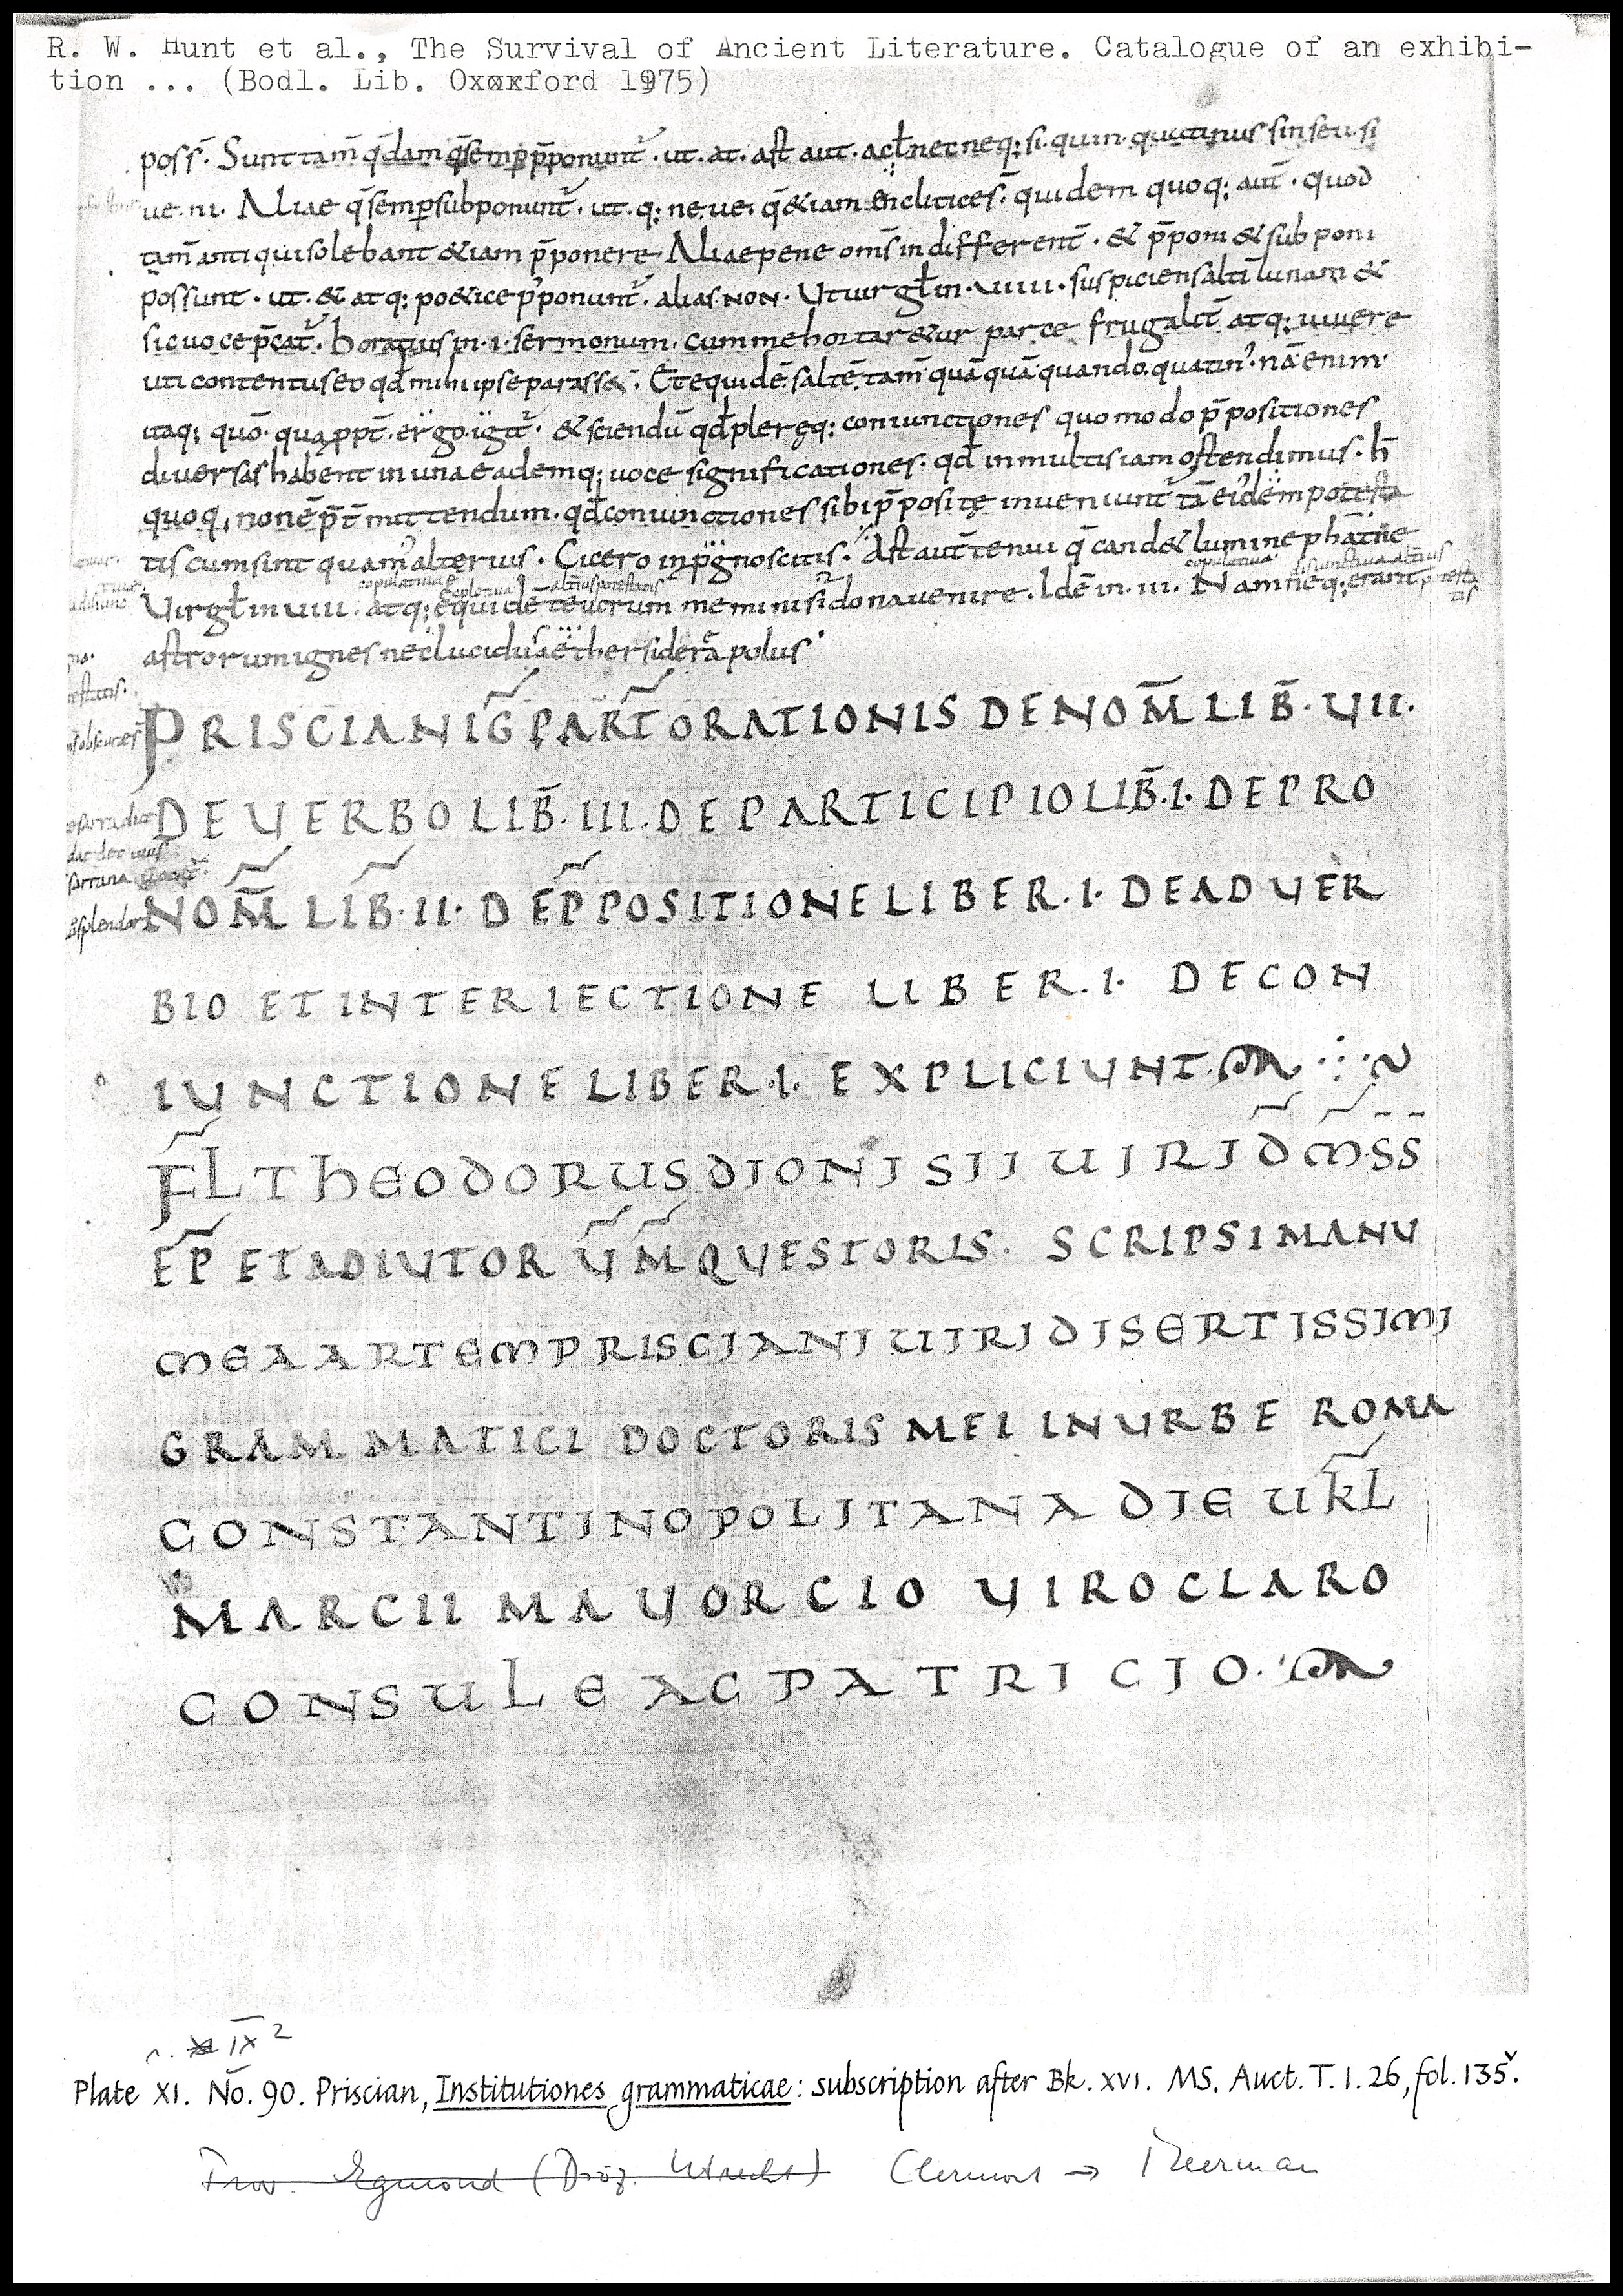 R. W. Hunt et al., The Survival of Ancient Literature. Catalogue of an exhibi-
tion ... (Bodl. Lib. Oxøxford 1975)
poss̄. Sunt tam̄ q̄dam q̄ semp p̄ponunt̄. ut. at. ast aut. ac ł nec neq; si. quin. quatinus sin seu. si
ue. ni. Aliae q̄ semp subponunt̄. ut. q; ne. ue. q̄ &iam encliticę s̄. quidem quoq; aut̄. quod
tam̄ antiqui solebant &iam p̄ponere. Aliae pene om̄s indifferent̄. & p̄poni & subponi
possunt. ut. & atq; po&ice p̄ponunt̄. alias. NON. Ut uirgł in. uiiii. suspiciens altā lunam &
sic uoce p̄cat̄. horatius in. i. sermonum. cum me hortar&ur parce frugalit̄ atq; uiuere
uti contentus eo qd̄ mihi ipse parass&. Et equidē. saltē. tam̄ quā quā quando. quatin'. nā enim
itaq; quō. quappt̄. ergo. igit̄. & sciendū qd̄ pleręq; coniunctiones quomodo p̄positiones
diuersas habent in una eademq; uoce significationes. qd̄ in multis iam ostendimus. h̄
quoq; non ē p̄t̄mittendum. qd̄ coniunctiones sibi p̄positę inueniunt̄ tā eiꝰdem potesta
tis cum sint quam alterius. Cicero in pgnosticis. Ast aut̄ tenui q̄ cand& lumine phatne
copulatiua expletiua alt̄ius potestatis copulatiua disiunctiua alt̄ius potesta
tis
Uirgł in uiiii. atq; equidē teucrum memini sidona uenire. Idē in. iii. Nam neq; erant
astrorum ignes nec lucidus aether siderea polus
PRISCIANI G̃ PART̃ ORATIONIS DE NOM̄ LIB̄. VII.
DE VERBO LIB̄. III. DE PARTICIPIO LIB̄. I. DE PRO
NOM̄ LIB̄. II. DE P̄POSITIONE LIBER. I. DE ADVER
BIO ET INTERIECTIONE LIBER. I. DE CON
IUNCTIONE LIBER. I. EXPLICIUNT.
FL̃ THEODORUS DIONISII UIRI D̃ M̃ S̄S̄
EP̃ ET ADIUTOR Ũ M̃ QUESTORIS. SCRIPSI MANU
MEA ARTEM PRISCIANI UIRI DISERTISSIMI
GRAMMATICI DOCTORIS MEI IN URBE ROMA
CONSTANTINOPOLITANA DIE U KL̃
MARCII MAVORCIO VIRO CLARO
CONSULE AC PATRICIO.
s. IX²
Plate XI. No. 90. Priscian, Institutiones grammaticae: subscription after Bk. XVI. MS. Auct. T. 1. 26, fol. 135ᵛ.
Prov. Egmond (Diöz. Utrecht) Clermont → Meerman